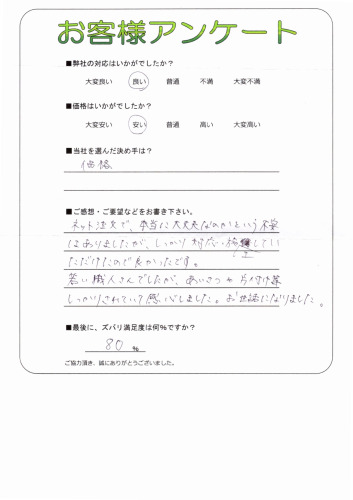 お客様アンケート
■弊社の対応はいかがでしたか？
大変良い 良い 普通 不満 大変不満
■価格はいかがでしたか？
大変安い 安い 普通 高い 大変高い
■当社を選んだ決め手は？
価格
■ご感想・ご要望などをお書き下さい。
ネット注文で、本当に大丈夫なのかという不安
はありましたが、しっかり対応・施工してい
ただけたので良かったです。
若い職人さんでしたが、あいさつや片付け等
しっかりされていて感心しました。お世話になりました。
■最後に、ズバリ満足度は何%ですか？
80 %
ご協力頂き、誠にありがとうございました。